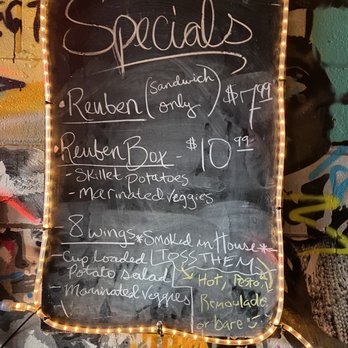 Specials
• Reuben (Sandwich only) $7.99
• Reuben Box - $10.99
- Skillet Potatoes
- Marinated Veggies
8 wings *Smoked in House*
- Cup Loaded Potato Salad
- Marinated Veggies
TOSS THEM
Hot, Pesto,
Remoulade
or bare